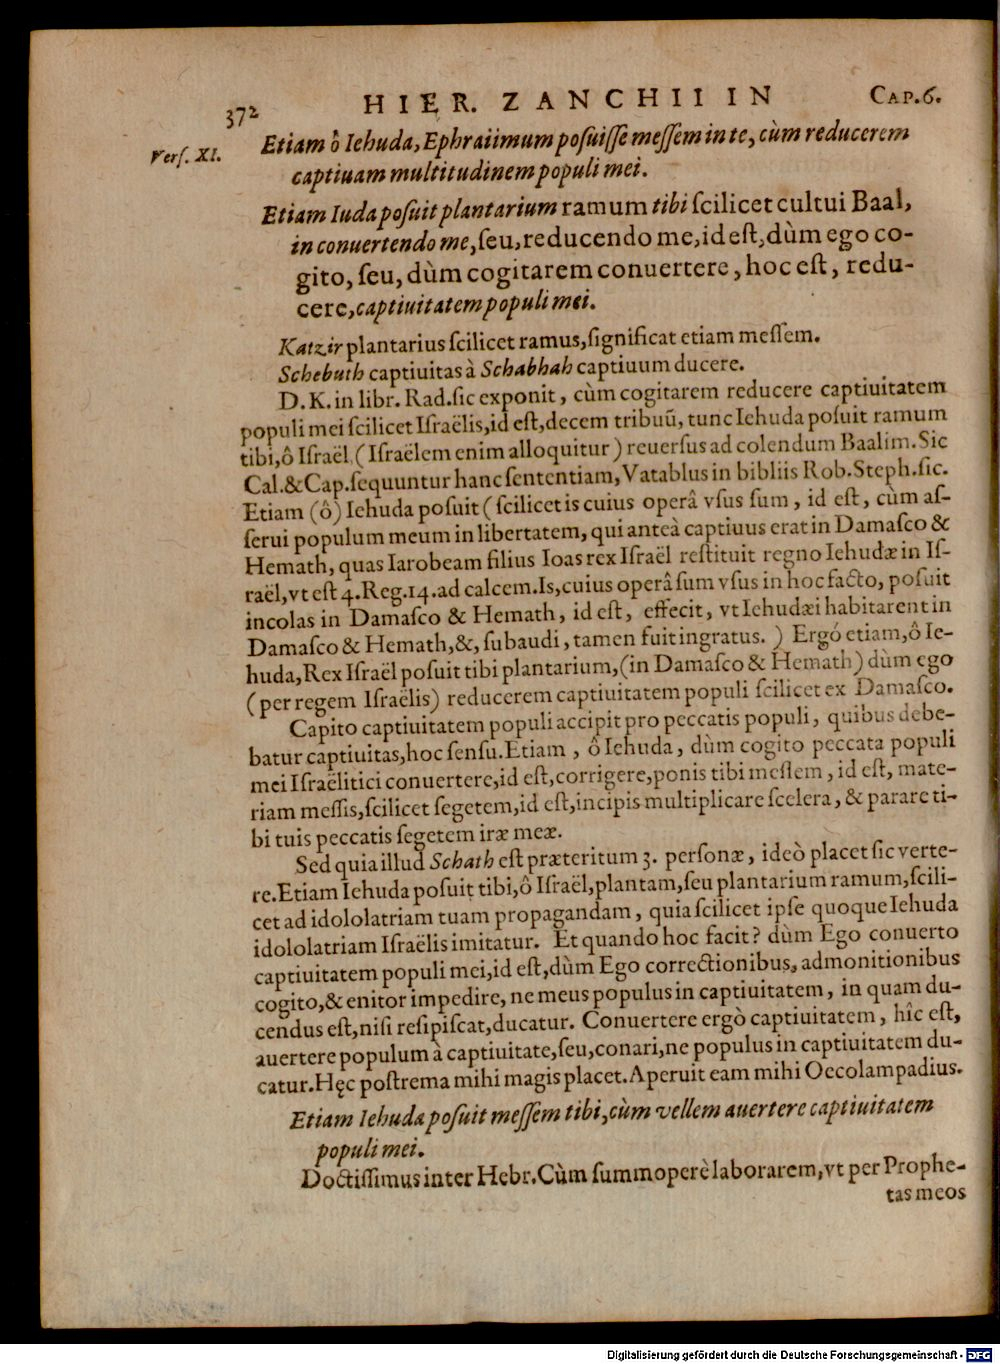 372 HIER. ZANCHII IN CAP. 6.
Verſ. XI. Etiam ô Iehuda, Ephraiimum poſuiſſe meſſem in te, cùm reducerem
captiuam multitudinem populi mei.
Etiam Iuda poſuit plantarium ramum tibi ſcilicet cultui Baal,
in conuertendo me, ſeu, reducendo me, id eſt, dùm ego co-
gito, ſeu, dùm cogitarem conuertere, hoc eſt, redu-
cere, captiuitatem populi mei.
Katzir plantarius ſcilicet ramus, ſignificat etiam meſſem.
Schebuth captiuitas à Schabhah captiuum ducere.
D. K. in libr. Rad. ſic exponit, cùm cogitarem reducere captiuitatem
populi mei ſcilicet Iſraëlis, id eſt, decem tribuũ, tunc Iehuda poſuit ramum
tibi, ô Iſraël, (Iſraëlem enim alloquitur) reuerſus ad colendum Baalim. Sic
Cal. & Cap. ſequuntur hanc ſententiam, Vatablus in bibliis Rob. Steph. ſic.
Etiam (ô) Iehuda poſuit (ſcilicet is cuius operâ vſus ſum, id eſt, cùm aſ-
ſerui populum meum in libertatem, qui anteà captiuus erat in Damaſco &
Hemath, quas Iarobeam filius Ioas rex Iſraël reſtituit regno Iehudæ in Iſ-
raël, vt eſt 4. Reg. 14. ad calcem. Is, cuius operâ ſum vſus in hoc facto, poſuit
incolas in Damaſco & Hemath, id eſt, effecit, vt Iehudæi habitarent in
Damaſco & Hemath, &, ſubaudi, tamen fuit ingratus. ) Ergó etiam, ô Ie-
huda, Rex Iſraël poſuit tibi plantarium, (in Damaſco & Hemath) dùm ego
(per regem Iſraëlis) reducerem captiuitatem populi ſcilicet ex Damaſco.
Capito captiuitatem populi accipit pro peccatis populi, quibus debe-
batur captiuitas, hoc ſenſu. Etiam, ô Iehuda, dùm cogito peccata populi
mei Iſraëlitici conuertere, id eſt, corrigere, ponis tibi meſſem, id eſt, mate-
riam meſſis, ſcilicet ſegetem, id eſt, incipis multiplicare ſcelera, & parare ti-
bi tuis peccatis ſegetem iræ meæ.
Sed quia illud Schath eſt præteritum 3. perſonæ, ideò placet ſic verte-
re. Etiam Iehuda poſuit tibi, ô Iſraël, plantam, ſeu plantarium ramum, ſcili-
cet ad idololatriam tuam propagandam, quia ſcilicet ipſe quoque Iehuda
idololatriam Iſraëlis imitatur. Et quando hoc facit? dùm Ego conuerto
captiuitatem populi mei, id eſt, dùm Ego correctionibus, admonitionibus
cogito, & enitor impedire, ne meus populus in captiuitatem, in quam du-
cendus eſt, niſi reſipiſcat, ducatur. Conuertere ergò captiuitatem, hîc eſt,
auertere populum à captiuitate, ſeu, conari, ne populus in captiuitatem du-
catur. Hęc poſtrema mihi magis placet. Aperuit eam mihi Oecolampadius.
Etiam Iehuda poſuit meſſem tibi, cùm vellem auertere captiuitatem
populi mei.
Doctiſſimus inter Hebr. Cùm ſummoperè laborarem, vt per Prophe-
tas meos
Digitalisierung gefördert durch die Deutsche Forschungsgemeinschaft - DFG